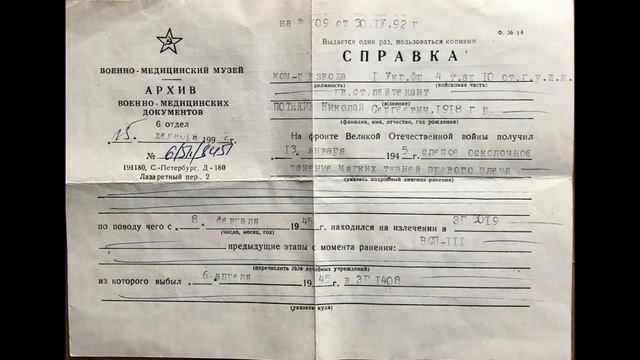 на № 709 от 30.IV.92 г
Выдается один раз, пользоваться копиями
Ф. № 14
СПРАВКА
ВОЕННО-МЕДИЦИНСКИЙ МУЗЕЙ
АРХИВ
ВОЕННО-МЕДИЦИНСКИХ
ДОКУМЕНТОВ
6 отдел
15 декабря 199 г.
№
191180, С.-Петербург, Д-180
Лазаретный пер., 2
ком-р взвода I Укр.Фр. 4 т.ар 10 от.г.у.д.к.
(должность) (войсковая часть)
гв.ст.лейтенант
(звание)
Николай Сергеевич, 1918 г р.
(фамилия, имя, отчество, год рождения)
На фронте Великой Отечественной войны получил
13 января 1945 г. слепое осколочное
ранение мягких тканей правого плеча
(указать подробный диагноз ранения)
по поводу чего с 8 февраля 1945 г. находился на излечении в ЭГ 2019
(число, месяц, год)
предыдущие этапы с момента ранения: ВСП-III
(перечислить №№ лечебных учреждений)
из которого выбыл 6 апреля 1945 г. в ЭГ 1408
(указать куда)